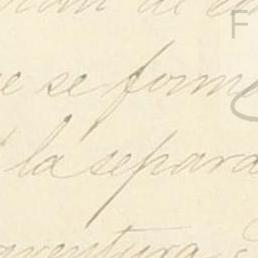 de
se forme
la separa
aventura